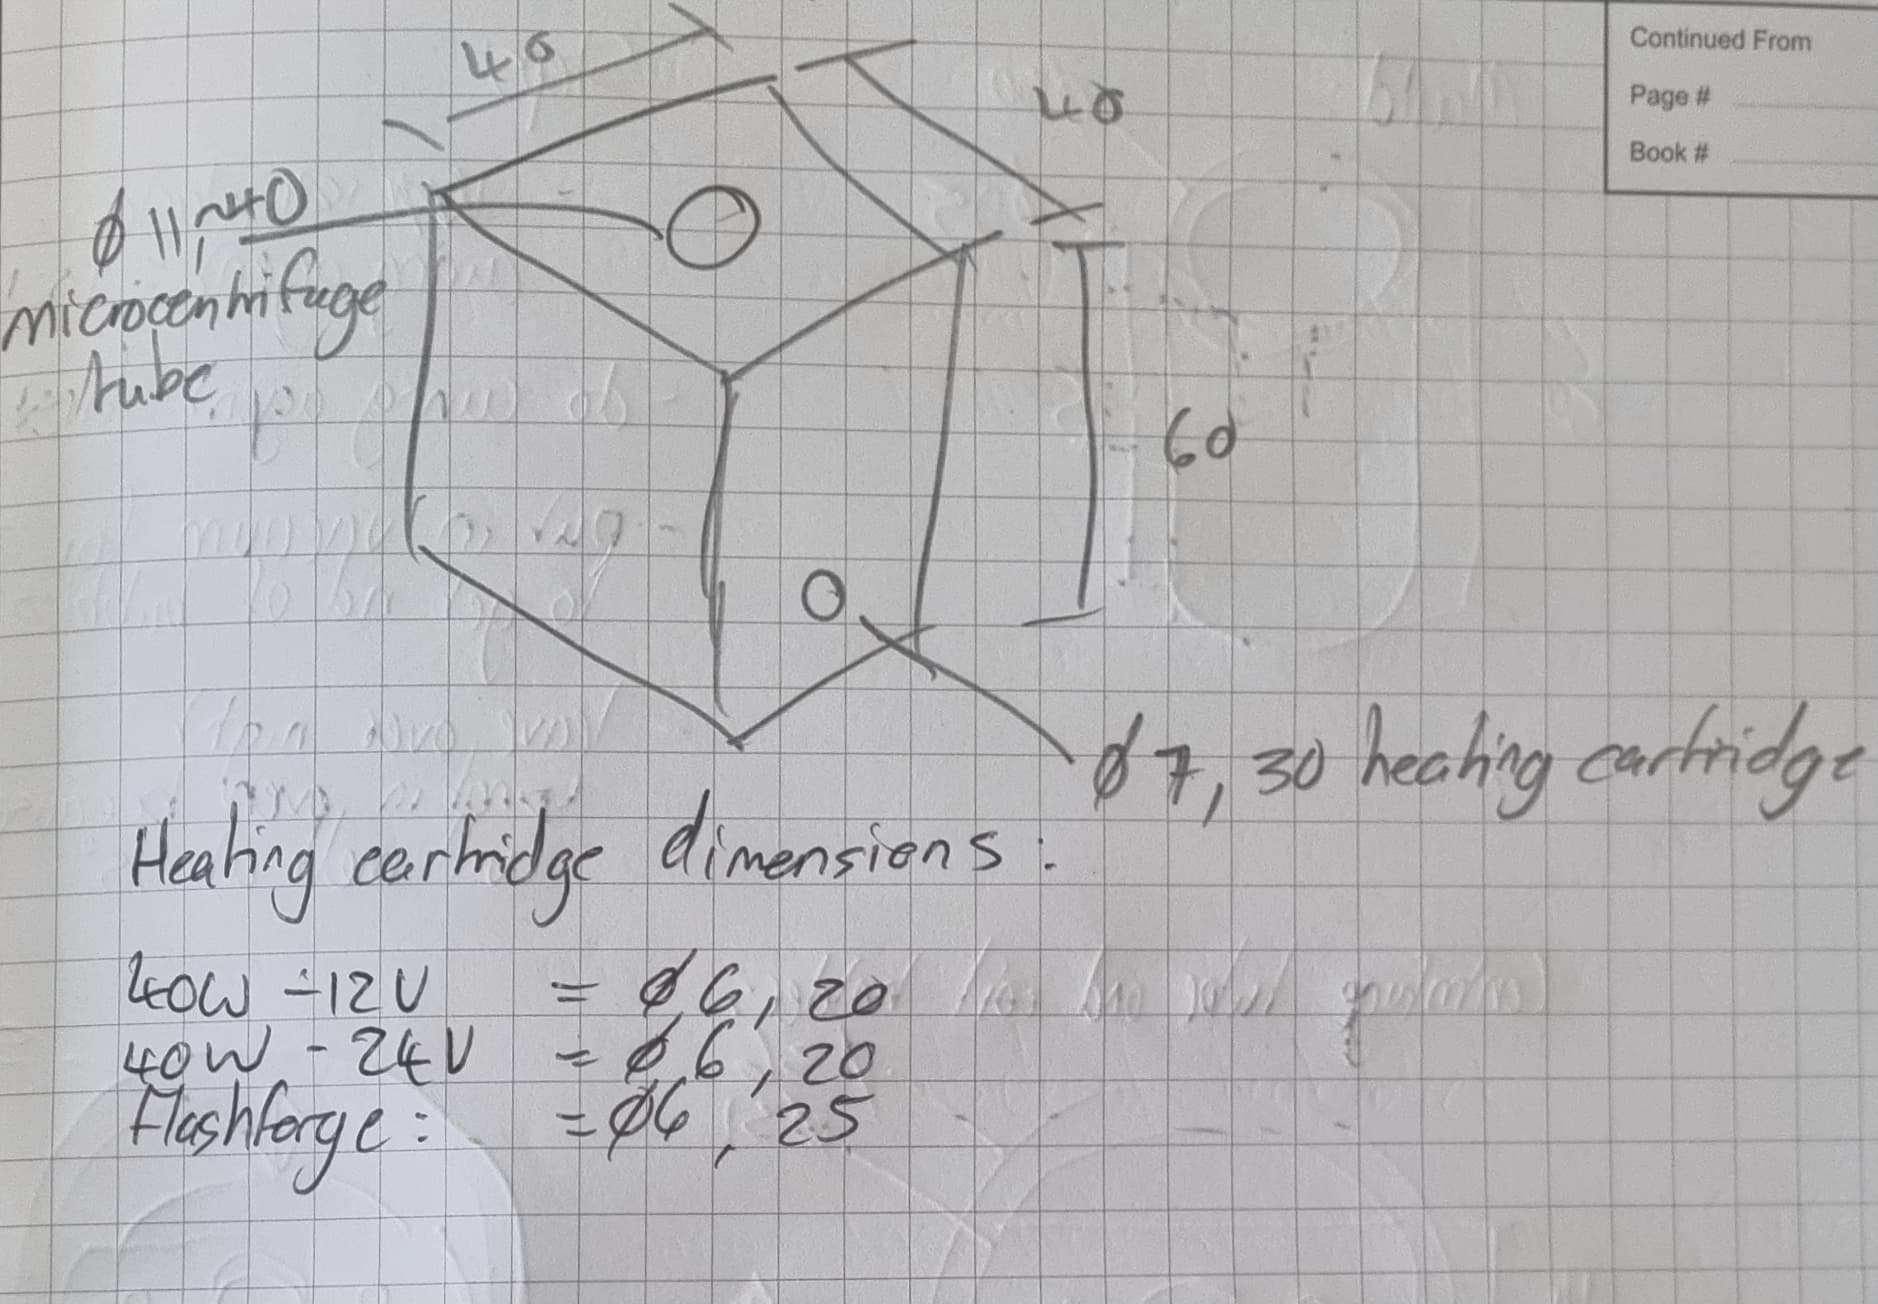 Continued From
Page #
Book #
40
40
ø 11, ~40
microcentrifuge
tube
60
ø 7, 30 heating cartridge
Heating cartridge dimensions:
40W - 12V = ø6, 20
40W - 24V = ø6, 20
Flashforge: = ø6, 25